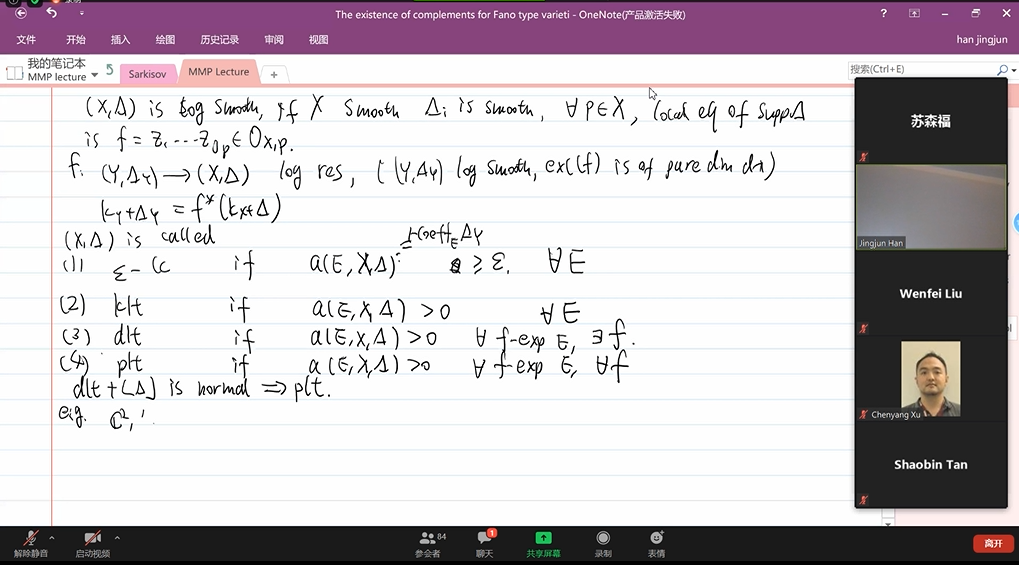 The existence of complements for Fano type varieti - OneNote(产品激活失败)
文件 开始 插入 绘图 历史记录 审阅 视图
han jingjun
我的笔记本
MMP lecture
Sarkisov
MMP Lecture
搜索(Ctrl+E)
(X,Δ) is log smooth, if X smooth Δi is smooth, ∀ p∈X, local eq of suppΔ
is f = z1 ⋯ zop ∈ Ox,p.
f: (Y,ΔY) → (X,Δ) log res, ( (Y,ΔY) log smooth, exc(f) is of pure dim
KY+ΔY = f*(Kx+Δ)
(X,Δ) is called
1-coeffE ΔY
(1) ε-lc if a(E,X,Δ) ≥ ε. ∀E
(2) klt if a(E,X,Δ) >0 ∀E
(3) dlt if a(E,X,Δ) >0 ∀ f-exp E, ∃f.
(4) plt if a(E,X,Δ) >0 ∀ f-exp E, ∀f
dlt + ⌊Δ⌋ is normal ⇒ plt.
e.g. ℂ²,
苏森福
Jingjun Han
Wenfei Liu
Chenyang Xu
Shaobin Tan
解除静音
启动视频
参会者
84
聊天
1
共享屏幕
录制
表情
离开